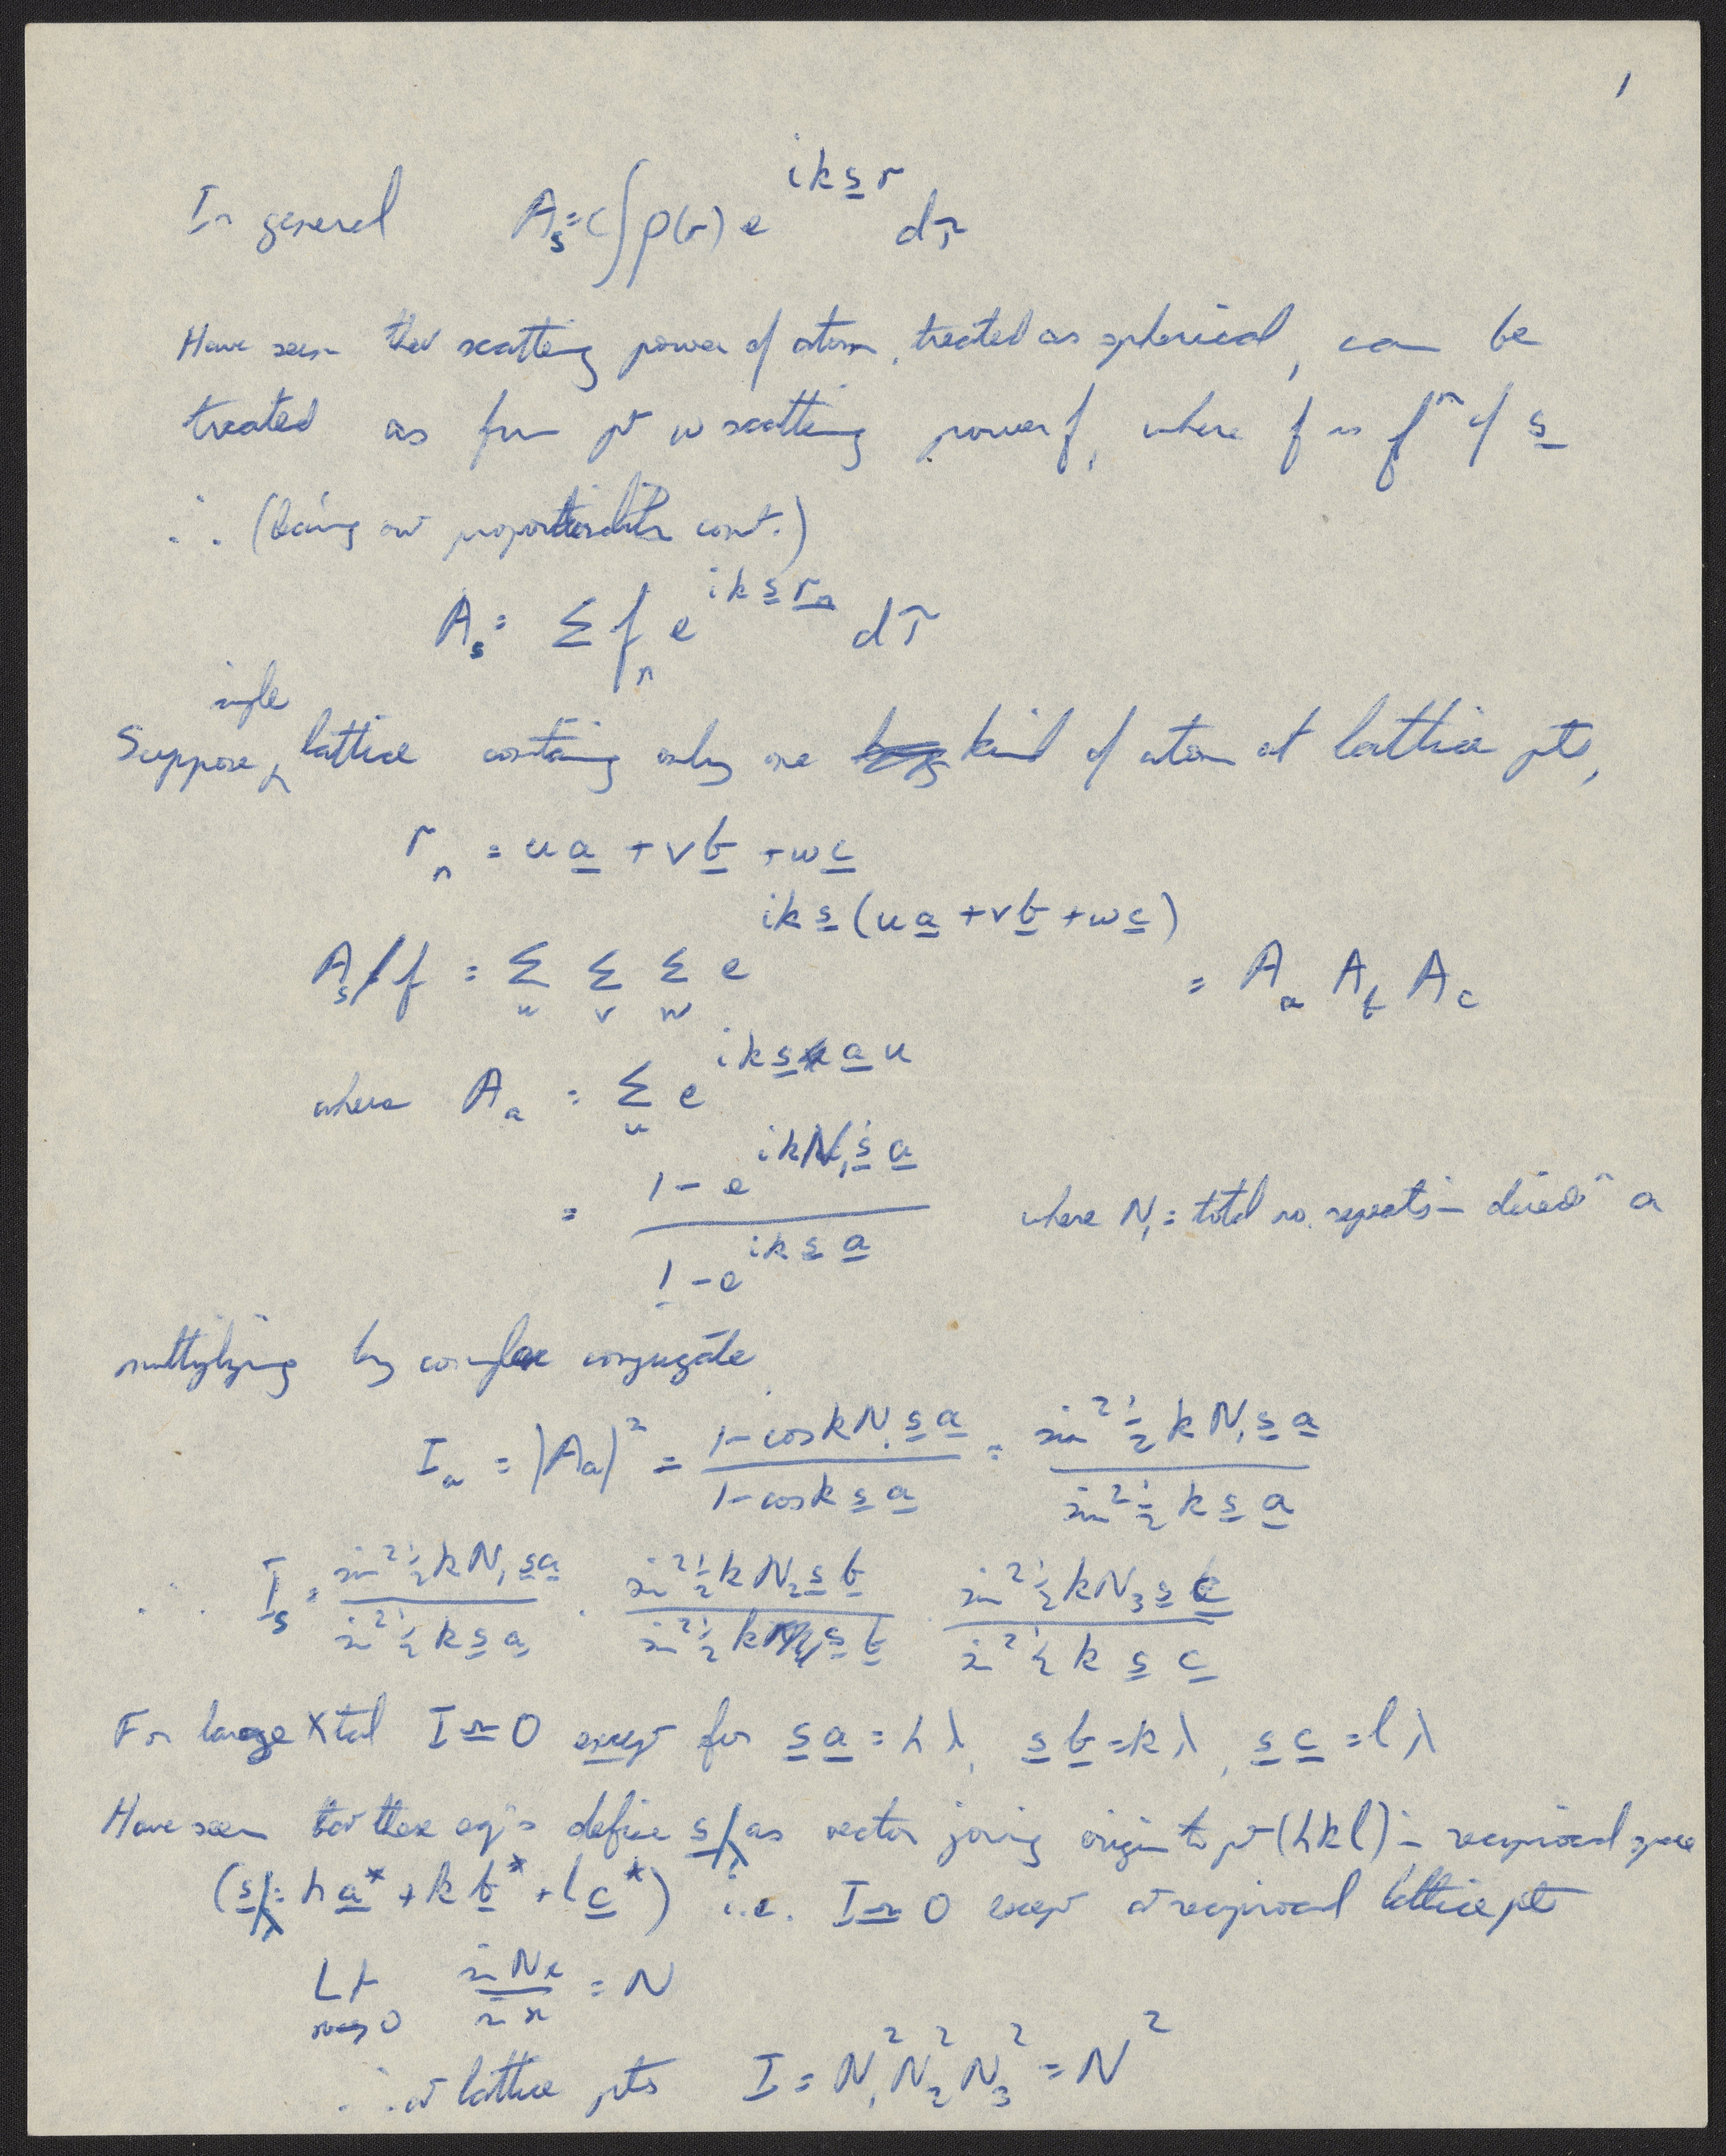 1
In general A_s = C ∫ρ(r) e^{ik s̲ r} dτ
Have seen that scatting power of atom, treated as spherical, can be
treated as from pt w scatting power f, where f is fⁿ of s̲
∴ (leaving out proportionality const.)
A_s = Σ f_n e^{ik s̲ r̲_n} dτ
single
Suppose ‸ lattice containing only one kind of atom at lattice pts,
r_n = u a̲ + v b̲ + w c̲
A_s/f = Σ_u Σ_v Σ_w e^{ik s̲ (u a̲ + v b̲ + w c̲)} = A_a A_b A_c
where A_a = Σ_u e^{ik s̲ a̲ u}
= (1 - e^{ik N₁ s̲ a̲}) / (1 - e^{ik s̲ a̲}) where N₁ = total no. repeats in directⁿ a
multiplying by complex conjugate
I_a = |A_a|² = (1 - cos k N₁ s̲ a̲) / (1 - cos k s̲ a̲) = (sin² ½ k N₁ s̲ a̲) / (sin² ½ k s̲ a̲)
∴ I_s = (sin² ½ k N₁ s̲ a̲) / (sin² ½ k s̲ a̲) · (sin² ½ k N₂ s̲ b̲) / (sin² ½ k s̲ b̲) · (sin² ½ k N₃ s̲ c̲) / (sin² ½ k s̲ c̲)
For large Xtal I ≃ 0 except for s̲ a̲ = hλ, s̲ b̲ = kλ, s̲ c̲ = lλ
Have seen that these eqⁿs define s̲/λ as vector joining origin to pt (hkl) in reciprocal space
(s̲/λ = h a̲* + k b̲* + l c̲*) i.e. I ≃ 0 except at reciprocal lattice pts
Lt x→0 (sin Nx) / (sin x) = N
∴ at lattice pts I = N₁² N₂² N₃² = N²